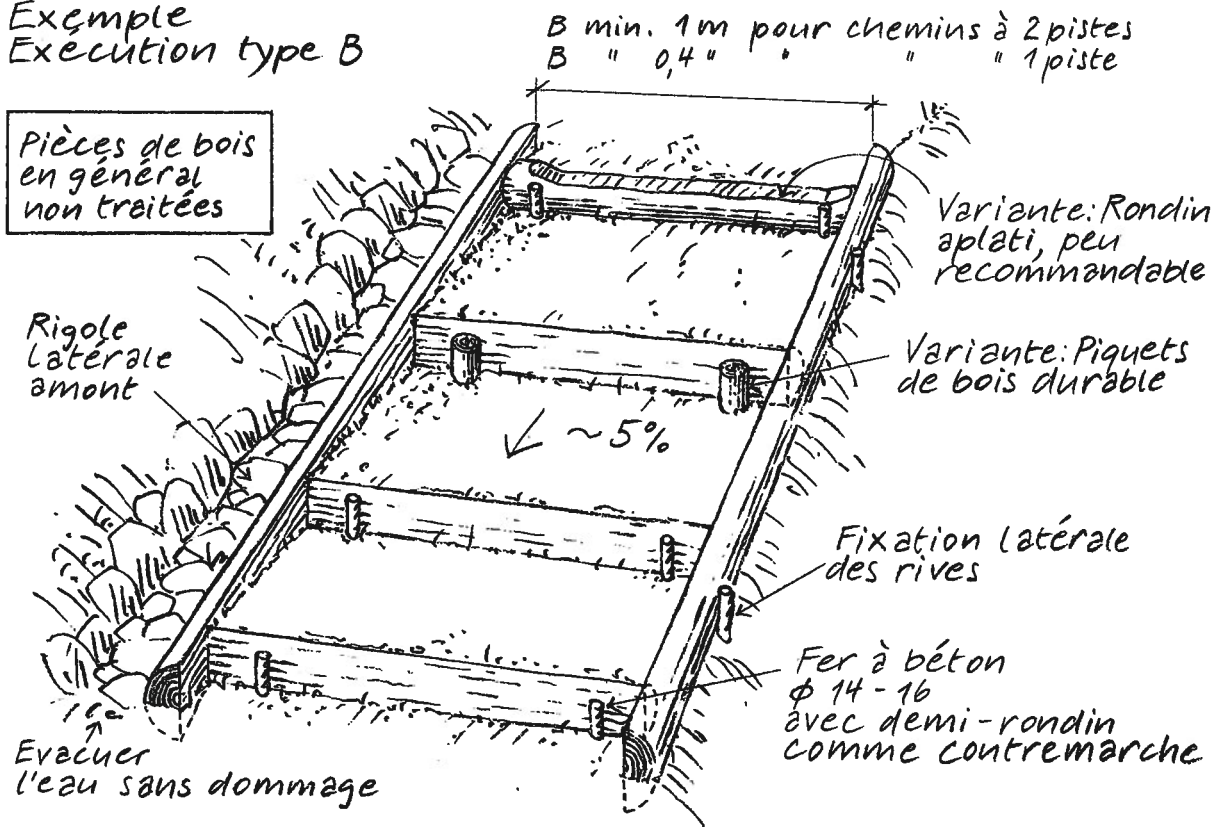 Exemple
Exécution type B
B min. 1m pour chemins à 2 pistes
B " 0,4 " " " " 1 piste
Pièces de bois
en général
non traitées
Variante: Rondin
aplati, peu
recommandable
Rigole
latérale
amont
Variante: Piquets
de bois durable
~5%
Fixation latérale
des rives
Fer à béton
ϕ 14-16
avec demi-rondin
comme contremarche
Evacuer
l'eau sans dommage